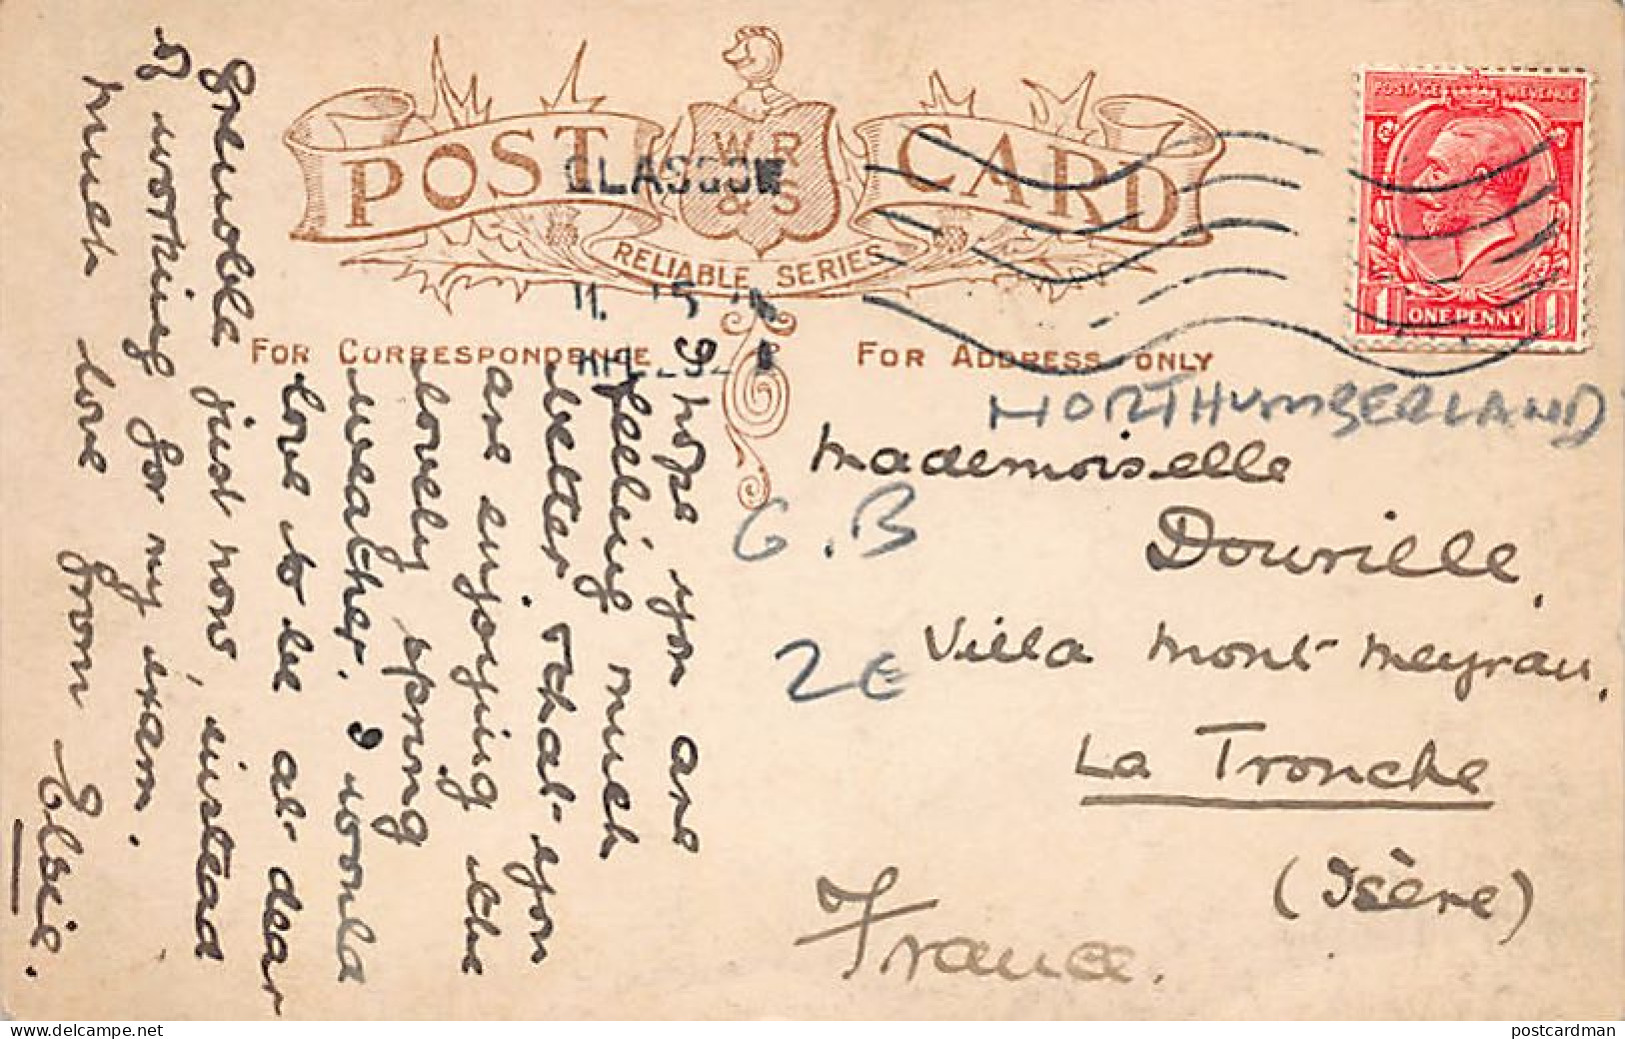 POST CARD
W R
& S
RELIABLE SERIES
GLASGOW
11. 15
FOR CORRESPONDENCE
FOR ADDRESS ONLY
POSTAGE REVENUE
1 ONE PENNY 1
NORTHUMBERLAND
G.B
2€
I hope you are
feeling much
better & that you
are enjoying the
lovely spring
weather. I would
love to be at dear
Grenoble just now, instead
of working for my exam.
Much love from Elsie.
Mademoiselle
Dourille,
Villa Mont-Meyrau,
La Tronche
(Isère)
France.
postcardman